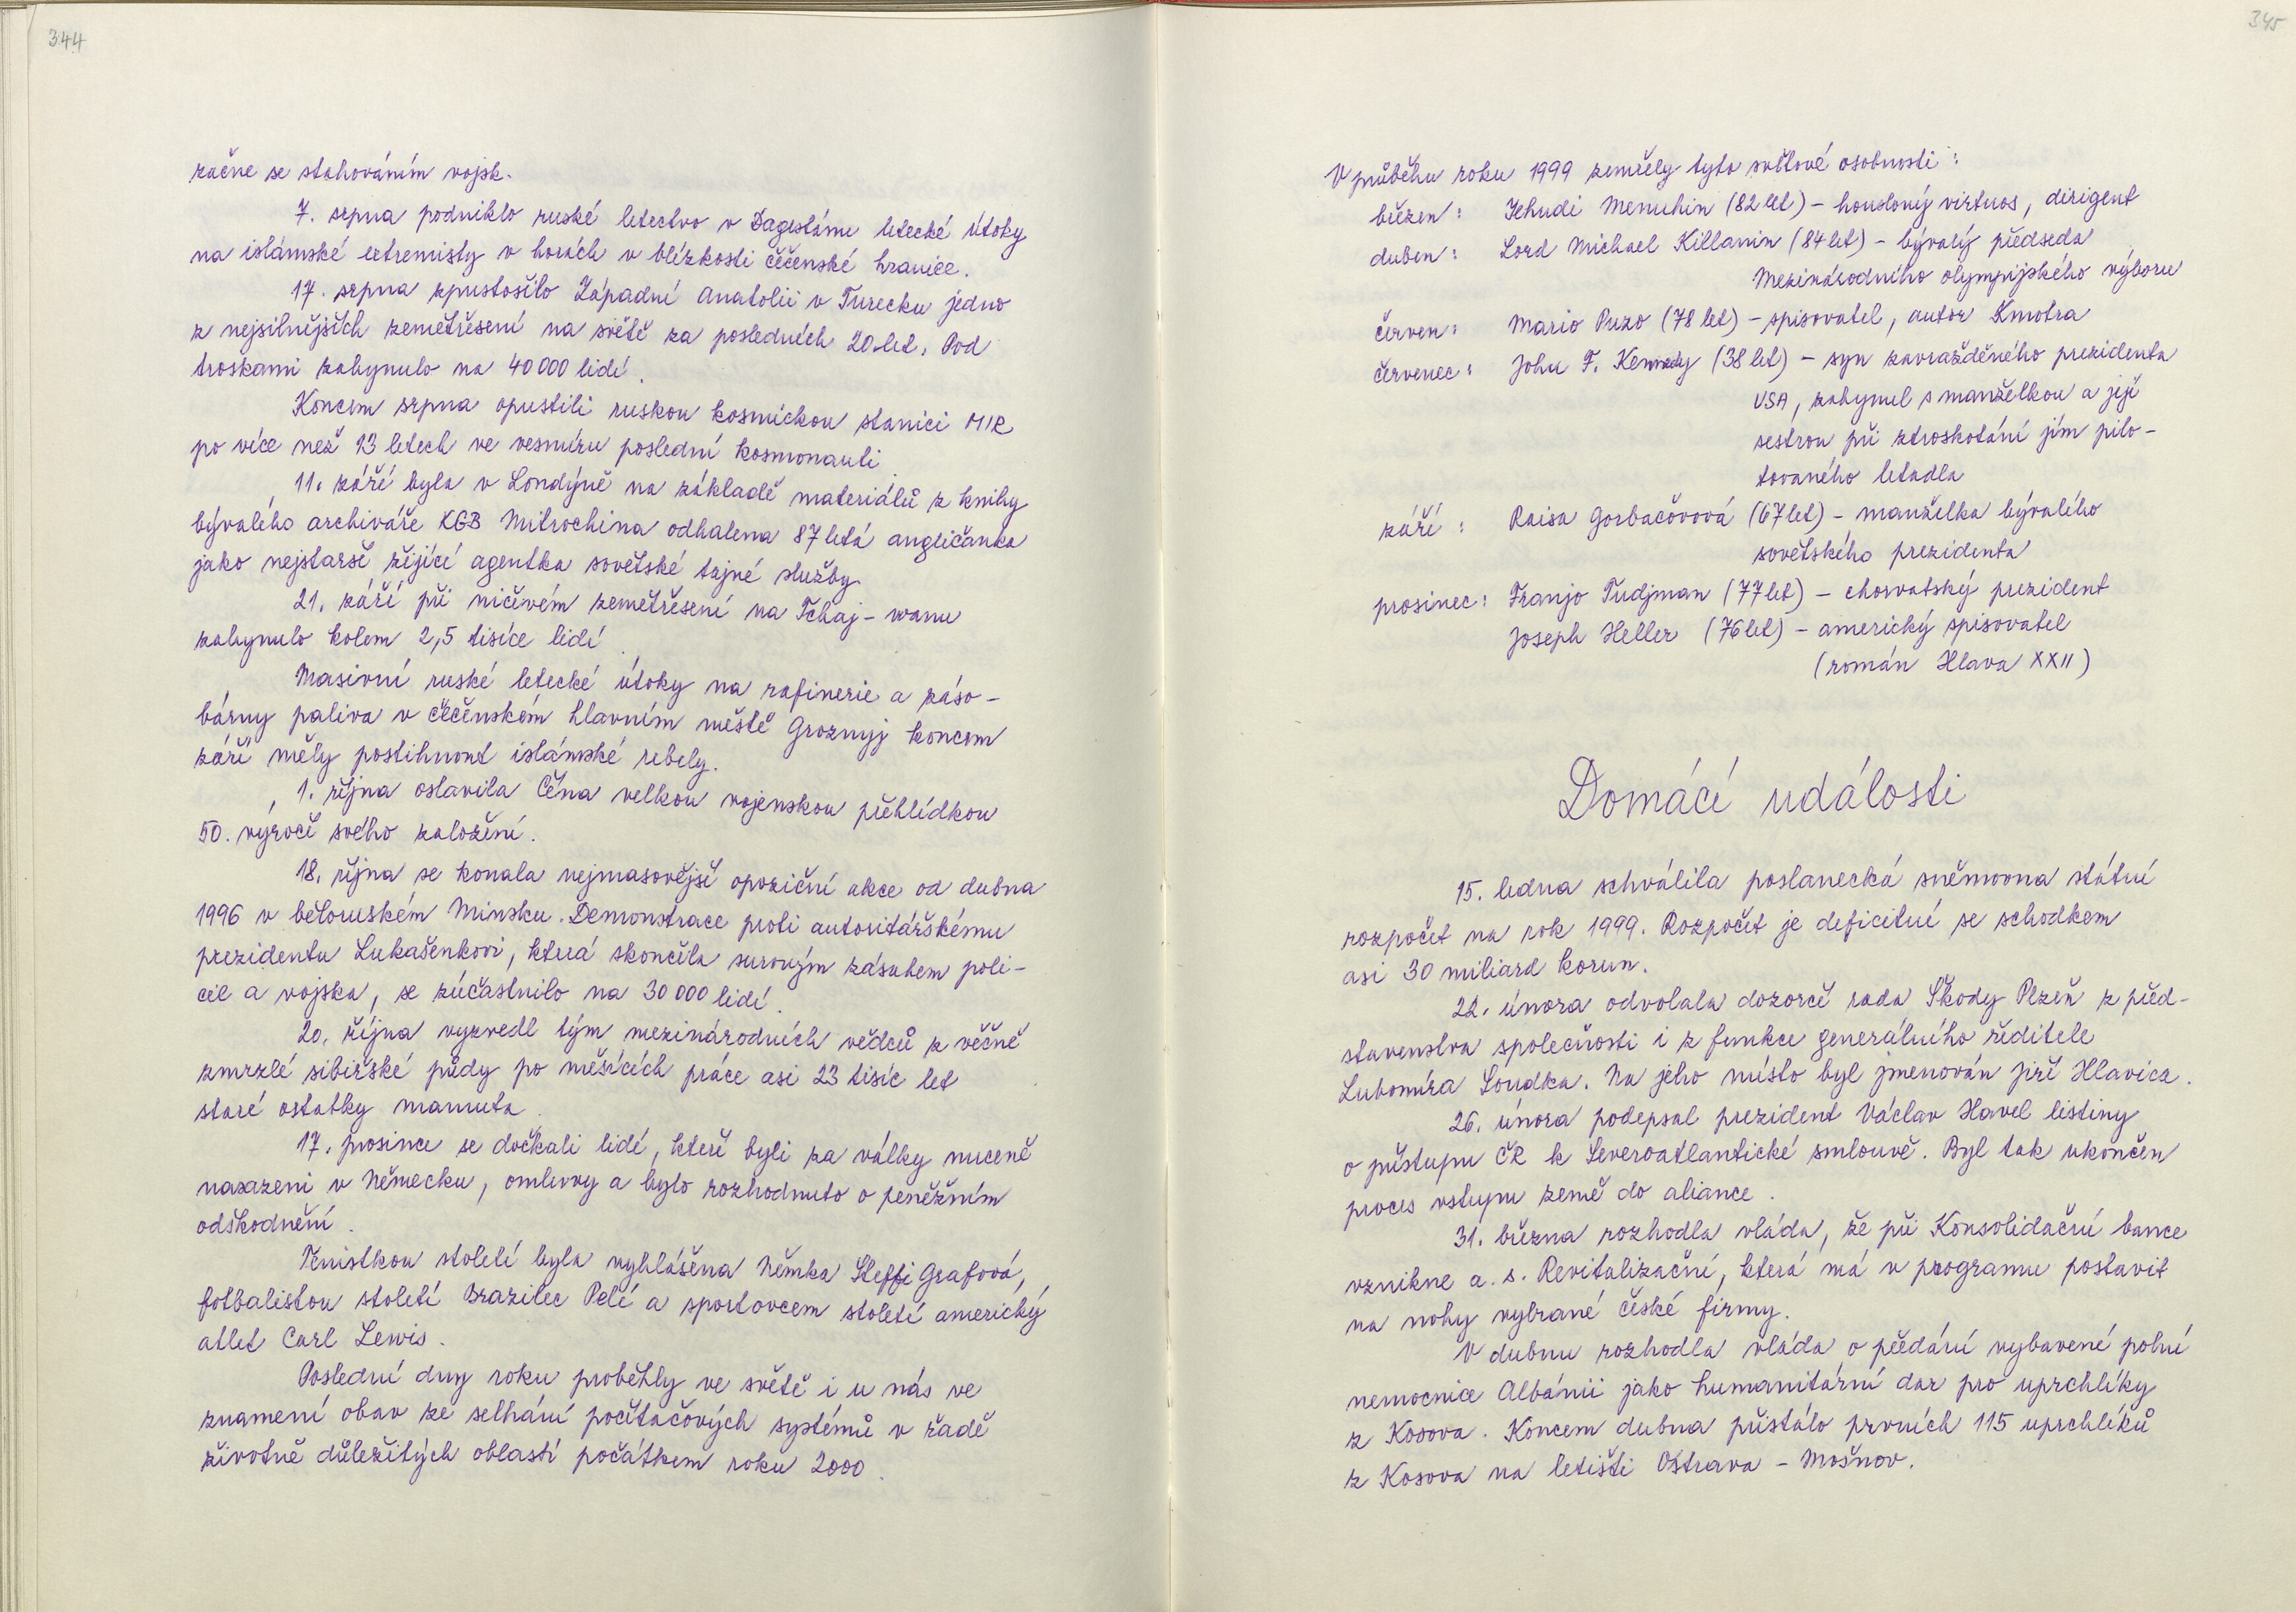 344
začne se stahováním vojsk.
7. srpna podniklo ruské letectvo v Dagestánu letecké útoky
na islámské extremisty v horách v blízkosti čečenské hranice.
17. srpna zpustošilo Západní Anatolii v Turecku jedno
z nejsilnějších zemětřesení na světě za posledních 20 let. Pod
troskami zahynulo na 40 000 lidí.
Koncem srpna opustili ruskou kosmickou stanici MIR
po více než 13 letech ve vesmíru poslední kosmonauti.
11. září byla v Londýně na základě materiálů z knihy
bývalého archiváře KGB Mitrochina odhalena 87 letá angličanka
jako nejstarší žijící agentka sovětské tajné služby.
21. září při ničivém zemětřesení na Tchaj-wanu
zahynulo kolem 2,5 tisíce lidí.
Masivní ruské letecké útoky na rafinerie a záso-
bárny paliva v čečenském hlavním městě Groznyj koncem
září měly postihnout islámské rebely.
1. října oslavila Čína velkou vojenskou přehlídkou
50. výročí svého založení.
18. října se konala nejmasovější opoziční akce od dubna
1996 v běloruském Minsku. Demonstrace proti autoritářskému
prezidentu Lukašenkovi, která skončila surovým zásahem poli-
cie a vojska, se zúčastnilo na 30 000 lidí.
20. října vyzvedl tým mezinárodních vědců z věčně
zmrzlé sibiřské půdy po měsících práce asi 23 tisíc let
staré ostatky mamuta.
17. prosince se dočkali lidé, kteří byli za války nuceně
nasazeni v Německu, omluvy a bylo rozhodnuto o peněžním
odškodnění.
Tenistkou století byla vyhlášena Němka Steffi Grafová,
fotbalistou století Brazilec Pelé a sportovcem století americký
atlet Carl Lewis.
Poslední dny roku proběhly ve světě i u nás ve
znamení obav ze selhání počítačových systémů v řadě
životně důležitých oblastí počátkem roku 2000.
345
V průběhu roku 1999 zemřely tyto světové osobnosti:
březen: Jehudi Menuhin (82 let) – houslový virtuos, dirigent
duben: Lord Michael Killanin (84 let) – bývalý předseda
Mezinárodního olympijského výboru
červen: Mario Puzo (78 let) – spisovatel, autor Kmotra
červenec: John F. Kennedy (38 let) – syn zavražděného prezidenta
USA, zahynul s manželkou a její
sestrou při ztroskotání jím pilo-
tovaného letadla
září: Raisa Gorbačovová (67 let) – manželka bývalého
sovětského prezidenta
prosinec: Franjo Tudjman (77 let) – chorvatský prezident
Joseph Heller (76 let) – americký spisovatel
(román Hlava XXII)
Domácí události
15. ledna schválila poslanecká sněmovna státní
rozpočet na rok 1999. Rozpočet je deficitní se schodkem
asi 30 miliard korun.
22. února odvolala dozorčí rada Škody Plzeň z před-
stavenstva společnosti i z funkce generálního ředitele
Lubomíra Soudka. Na jeho místo byl jmenován Jiří Hlavica.
26. února podepsal prezident Václav Havel listiny
o přístupu ČR k Severoatlantické smlouvě. Byl tak ukončen
proces vstupu země do aliance.
31. března rozhodla vláda, že při Konsolidační bance
vznikne a. s. Revitalizační, která má v programu postavit
na nohy vybrané české firmy.
V dubnu rozhodla vláda o předání vybavené polní
nemocnice Albánii jako humanitární dar pro uprchlíky
z Kosova. Koncem dubna přistálo prvních 115 uprchlíků
z Kosova na letišti Ostrava – Mošnov.